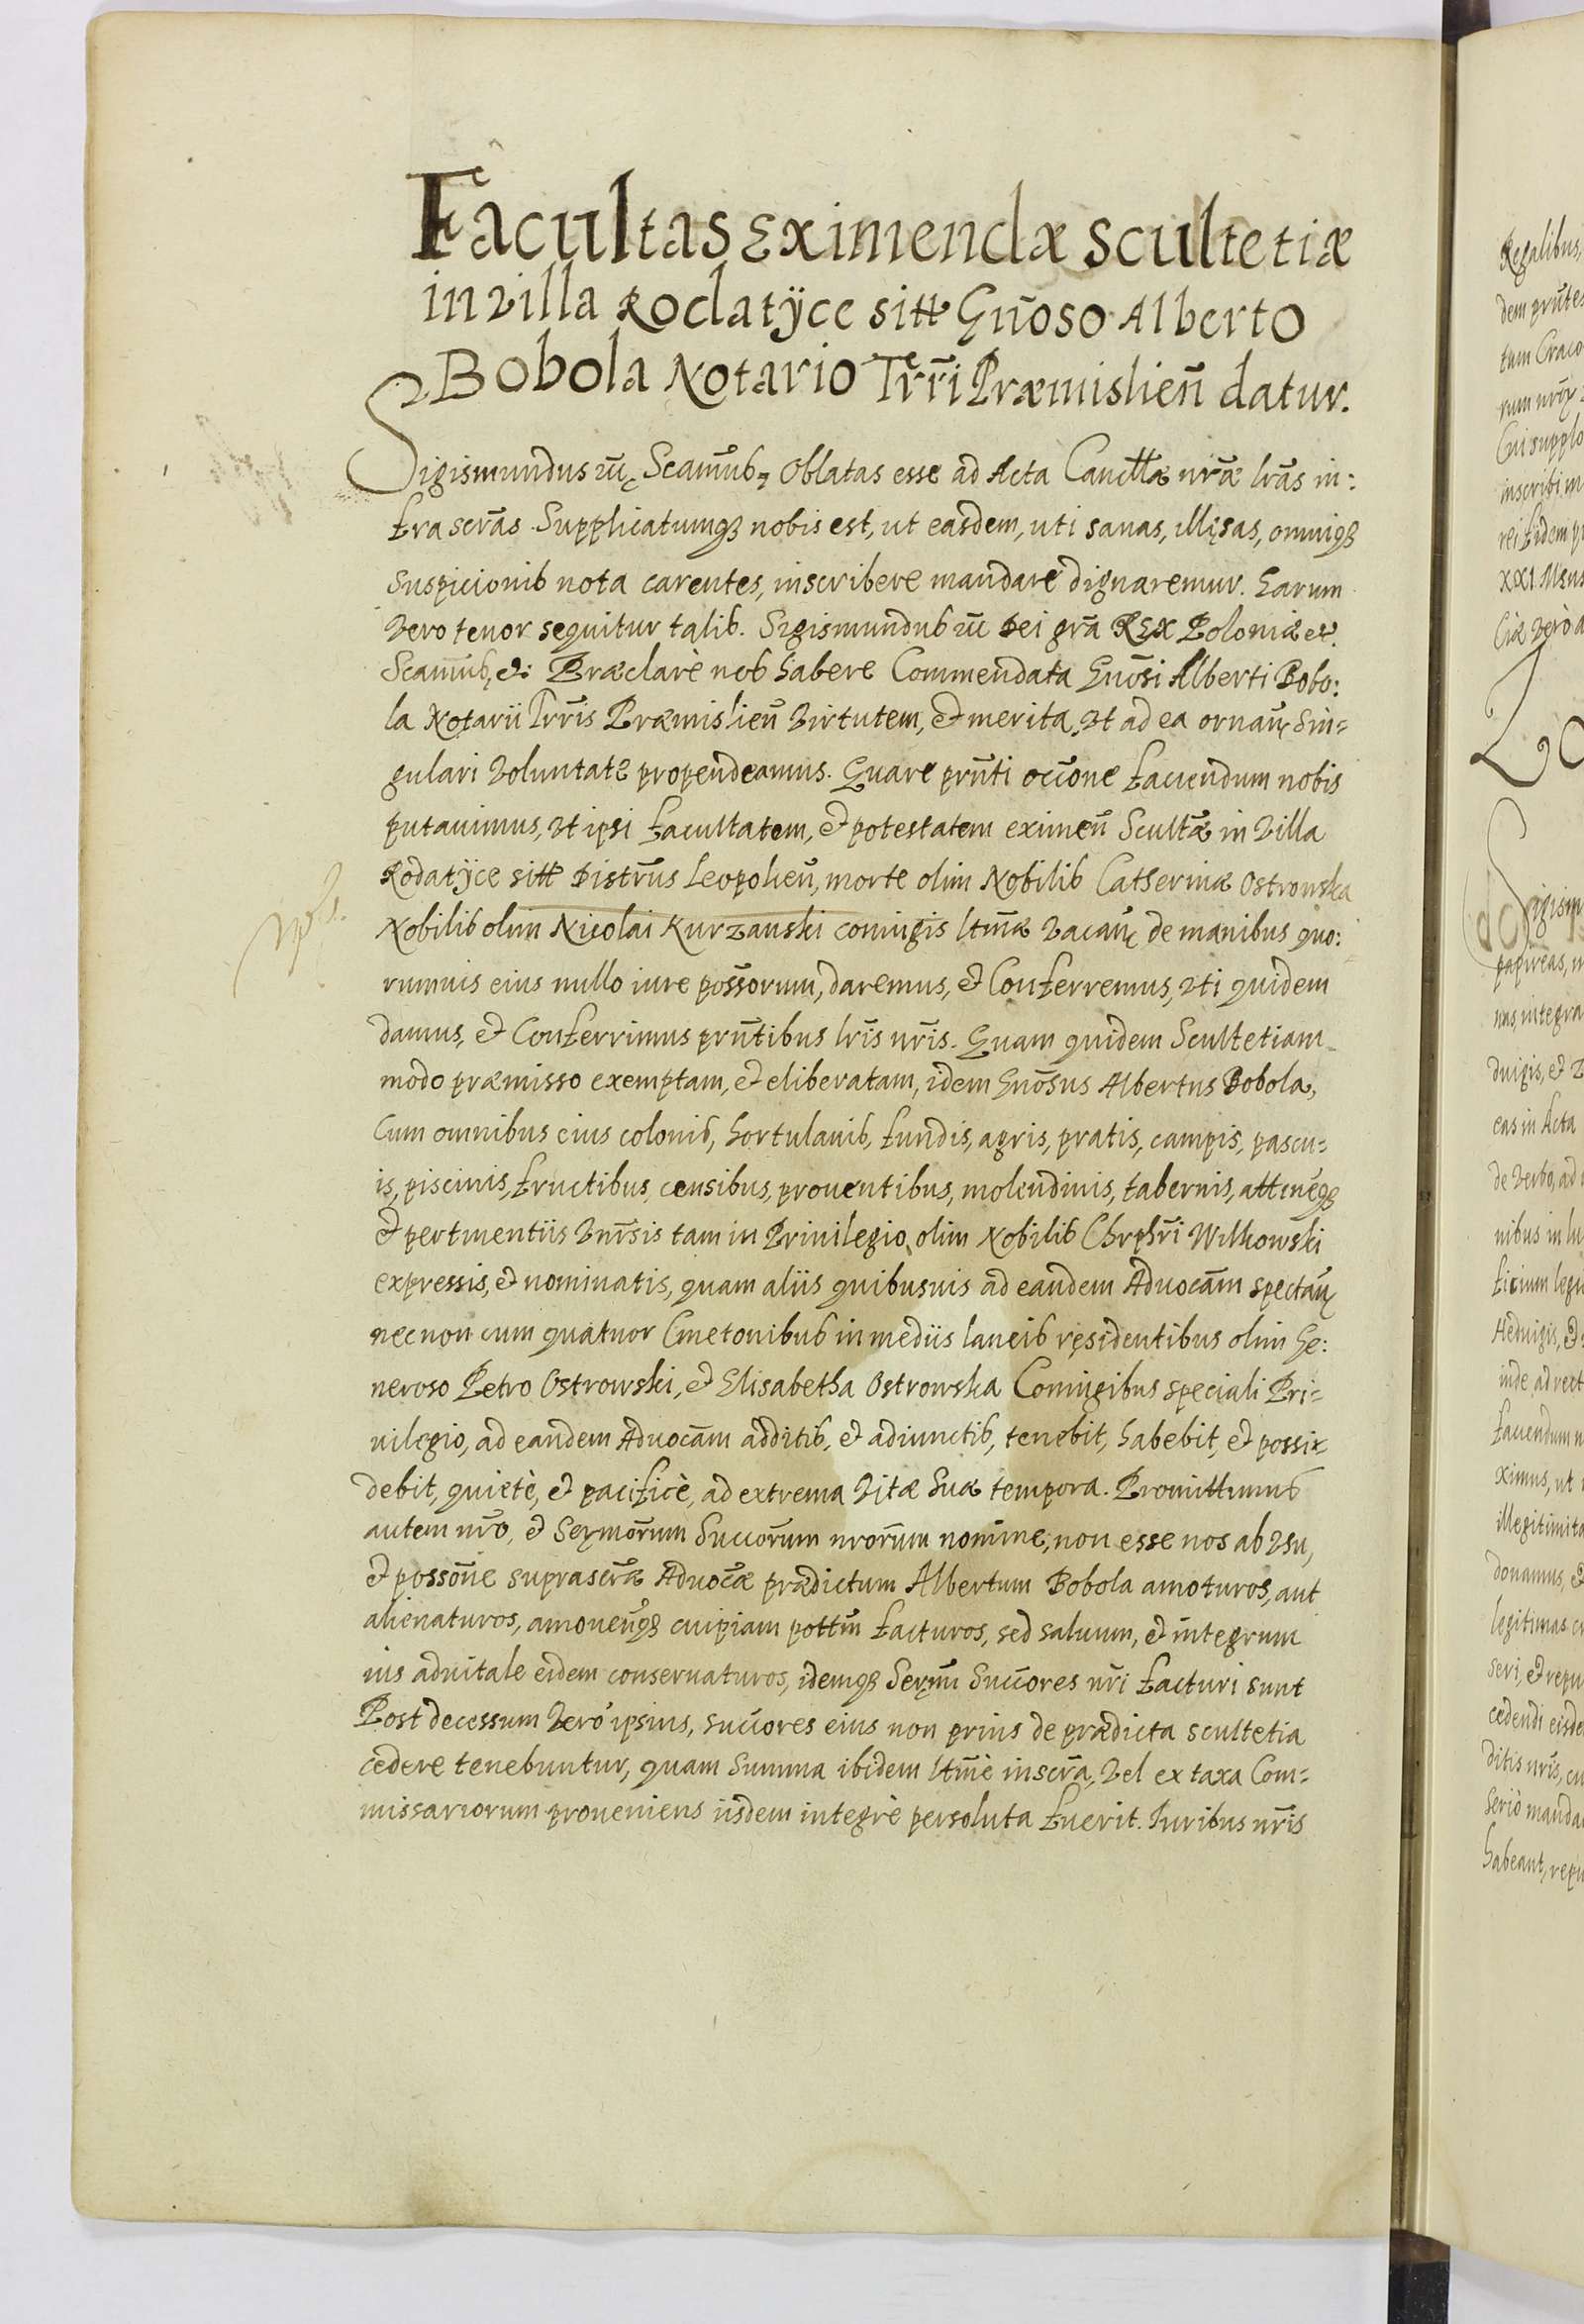 Facultas Eximendæ Scultetiæ
in villa Rodatÿce sitt Gn̄oso Alberto
Bobola Notario Terr̄i Præmislien̄ datur.
Sigismundus iii Scam̄ub, Oblatas esse ad Acta Cancllæ nr̄æ lr̄as in:
fra scr̄as Supplicatumq3 nobis est, ut easdem, uti sanas, illęsas, omniq3
suspicionib nota carentes, inscribere mandare dignaremur. harum
vero tenor sequitur talib. Sigismundub iii Dei gr̄a REX Poloniæ etc.
Scam̄ub, etc: Præclarè nob habere Commendata Gn̄osi Alberti Bobo:
la Notarii Trr̄is Præmislien̄ virtutem, et merita, vt ad ea ornan̄ Sin=
gulari voluntate propendeamus. Quare prn̄ti occ̄one faciendum nobis
putauimus, vt ipsi facultatem, et potestatem eximen̄ Scultæ in villa
Rodatÿce sitt Distrus Leopolien̄, morte olim Nobilib Catherinæ Ostrowska
Nobilib olim Nicolai Kurzanski coniugis ltm̄æ vacan̄ de manibus quo:
rumuis eius nullo iure poss̄orum, daremus, et Conferremus, vti quidem
damus, et Conferrimus prn̄tibus lr̄is nr̄is. Quam quidem Scultetiam
modo præmisso exemptam, et eliberatam, idem Gn̄osus Albertus Bobola,
Cum omnibus eius colonib, hortulanib, fundis, agris, pratis, campis, pascu=
is, piscinis, fructibus, censibus, prouentibus, molendinis, tabernis, attinen̄q3
et pertinentiis vnr̄sis tam in Priuilegio olim Nobilib Chrphr̄i Wilkowski
expressis, et nominatis, quam aliis quibusuis ad eandem Aduocām spectan̄
nec non cum quatuor Cmetonibub in mediis laneib ręsidentibus olim Ge:
neroso Petro Ostrowski, et Elisabetha Ostrowska Coniugibus speciali Pri=
uilegio, ad eandem Aduocām additib, et adiunctib, tenebit, habebit, et possi=
debit, quietè, et pacificè, ad extrema vitæ Suæ tempora. Promittimub
autem nr̄o, et Serm̄orum Succ̄orum nrorūm nomine, non esse nos ab vsu,
et poss̄one suprascr̄æ Aduocæ prædictum Albertum Bobola amoturos, aut
alienaturos, amouen̄q3 cuipiam pottm̄ facturos, sed saluum, et integrum
ius aduitale eidem conseruaturos, idemq3 Serm̄i Succ̄ores nr̄i facturi sunt
Post decessum vero ipsius, succ̄ores eius non prius de prædicta scultetia
cedere tenebuntur, quam Summa ibidem ltm̄è inscr̄a, vel ex taxa Com=
missariorum proueniens iisdem integrè persoluta fuerit. Iuribus nr̄is
Regalibus,
dem prn̄tes
tum Craco
rum nr̄ox
Cui supplo
inscribi m
rei fidem p
XXI. Mens
Ciæ verò a
papireas, in
nas integra
duigis, et
eas in Acta
de verbo, ad
nibus in lu
ficium legi
Heduigis, et
inde ad rect
faciendum n
ximus, ut
illegitimita
donamus, et
legitimas
seri, et repu
cedendi eisde
ditis nr̄is, cu
Seriò manda
habeant, repu